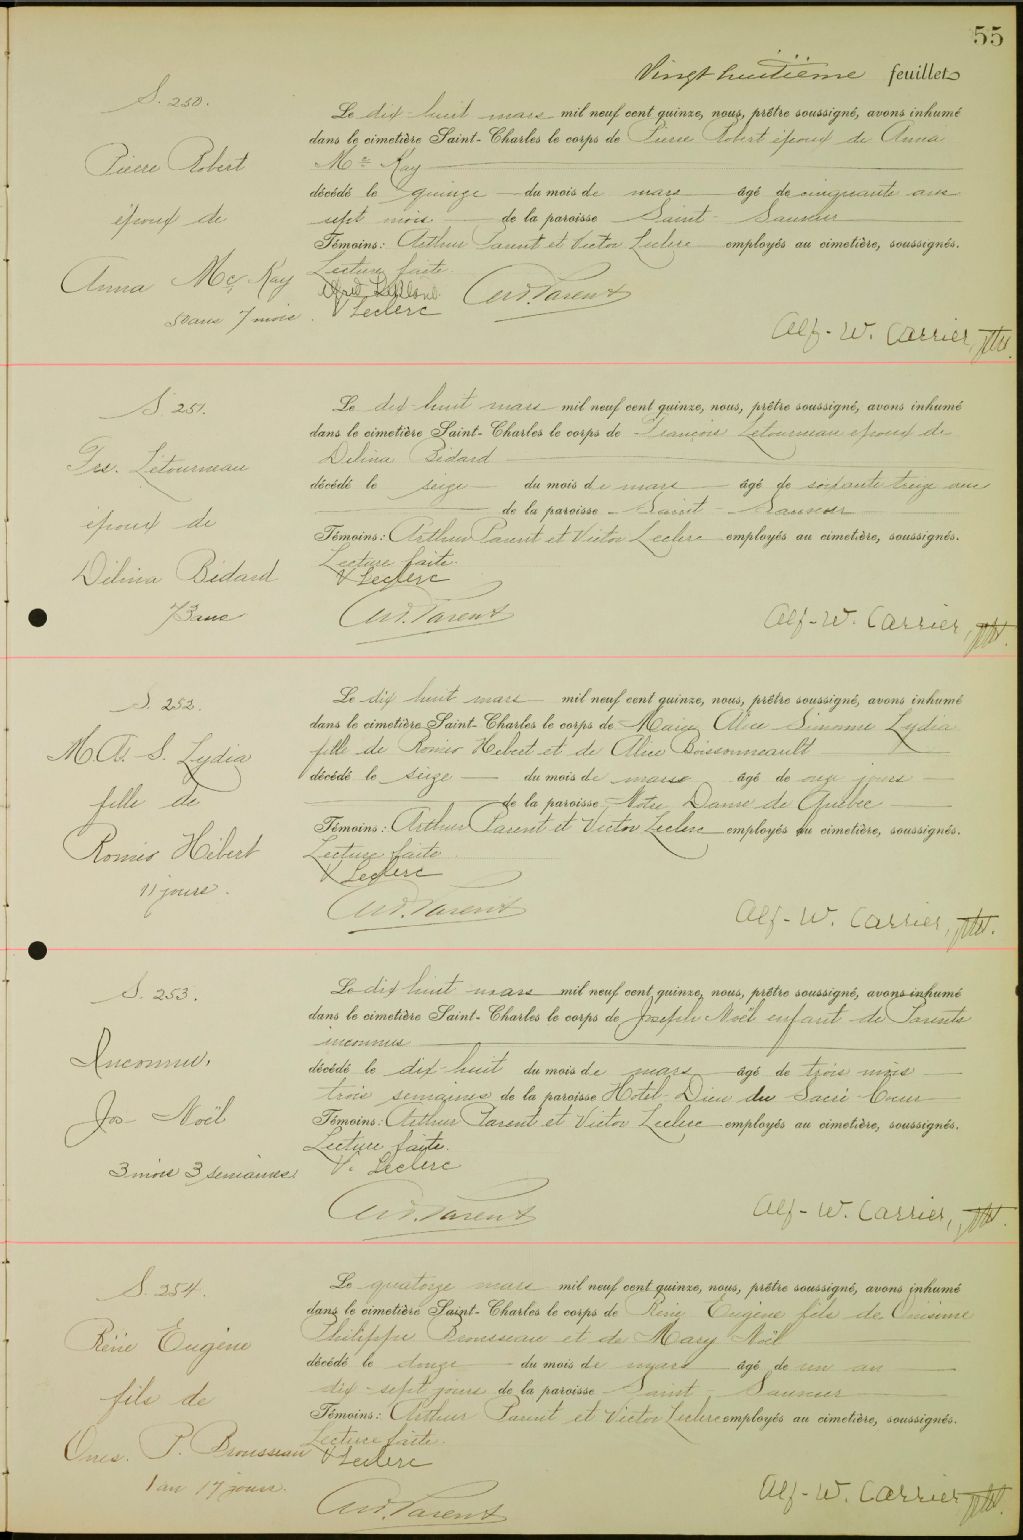 55
Vingt huitième feuillet
S. 250.
Pierre Robert
époux de
Anna Mc Kay
50 ans 7 mois.
Le dix huit mars mil neuf cent quinze, nous, prêtre soussigné, avons inhumé
dans le cimetière Saint-Charles le corps de Pierre Robert époux de Anna
Mc Kay
décédé le quinze du mois de mars âgé de cinquante ans
sept mois de la paroisse Saint-Sauveur
Témoins: Arthur Parent et Victor Leclerc employés au cimetière, soussignés.
Lecture faite.
V Leclerc
Art. Parent
Alf-W. Carrier, Ptre.
S. 251.
Frs. Létourneau
époux de
Délina Bédard
73 ans
Le dix-huit mars mil neuf cent quinze, nous, prêtre soussigné, avons inhumé
dans le cimetière Saint-Charles le corps de François Létourneau époux de
Délina Bédard
décédé le seize du mois de mars âgé de soixante treize ans
de la paroisse Saint-Sauveur
Témoins: Arthur Parent et Victor Leclerc employés au cimetière, soussignés.
Lecture faite.
V Leclerc
Art. Parent
Alf-W. Carrier, Ptre.
S. 252.
M. A. S. Lydia
fille de
Roméo Hébert
11 jours.
Le dix huit mars mil neuf cent quinze, nous, prêtre soussigné, avons inhumé
dans le cimetière Saint-Charles le corps de Marie Alice Simonne Lydia
fille de Roméo Hébert et de Alice Boissonneault
décédé le seize du mois de mars âgé de onze jours
de la paroisse Notre Dame de Québec
Témoins: Arthur Parent et Victor Leclerc employés au cimetière, soussignés.
Lecture faite
V Leclerc
Art. Parent
Alf-W. Carrier, Ptre.
S. 253.
Inconnu,
Jos Noël
3 mois 3 semaines.
Le dix huit mars mil neuf cent quinze, nous, prêtre soussigné, avons inhumé
dans le cimetière Saint-Charles le corps de Joseph Noël enfant de Parents
inconnus
décédé le dix-huit du mois de mars âgé de trois mois
trois semaines de la paroisse Hotel-Dieu du Sacré Coeur
Témoins: Arthur Parent et Victor Leclerc employés au cimetière, soussignés.
Lecture faite.
V. Leclerc
Art. Parent
Alf-W. Carrier, Ptre.
S. 254.
Réné Eugène
fils de
Ones. P. Brousseau
1 an 17 jours.
Le quatorze mars mil neuf cent quinze, nous, prêtre soussigné, avons inhumé
dans le cimetière Saint-Charles le corps de Réné Eugène fils de Onésime
Philippe Brousseau et de Mary Noël
décédé le douze du mois de mars âgé de un an
dix-sept jours de la paroisse Saint-Sauveur
Témoins: Arthur Parent et Victor Leclerc employés au cimetière, soussignés.
Lecture faite.
V Leclerc
Art. Parent
Alf-W. Carrier Ptre.